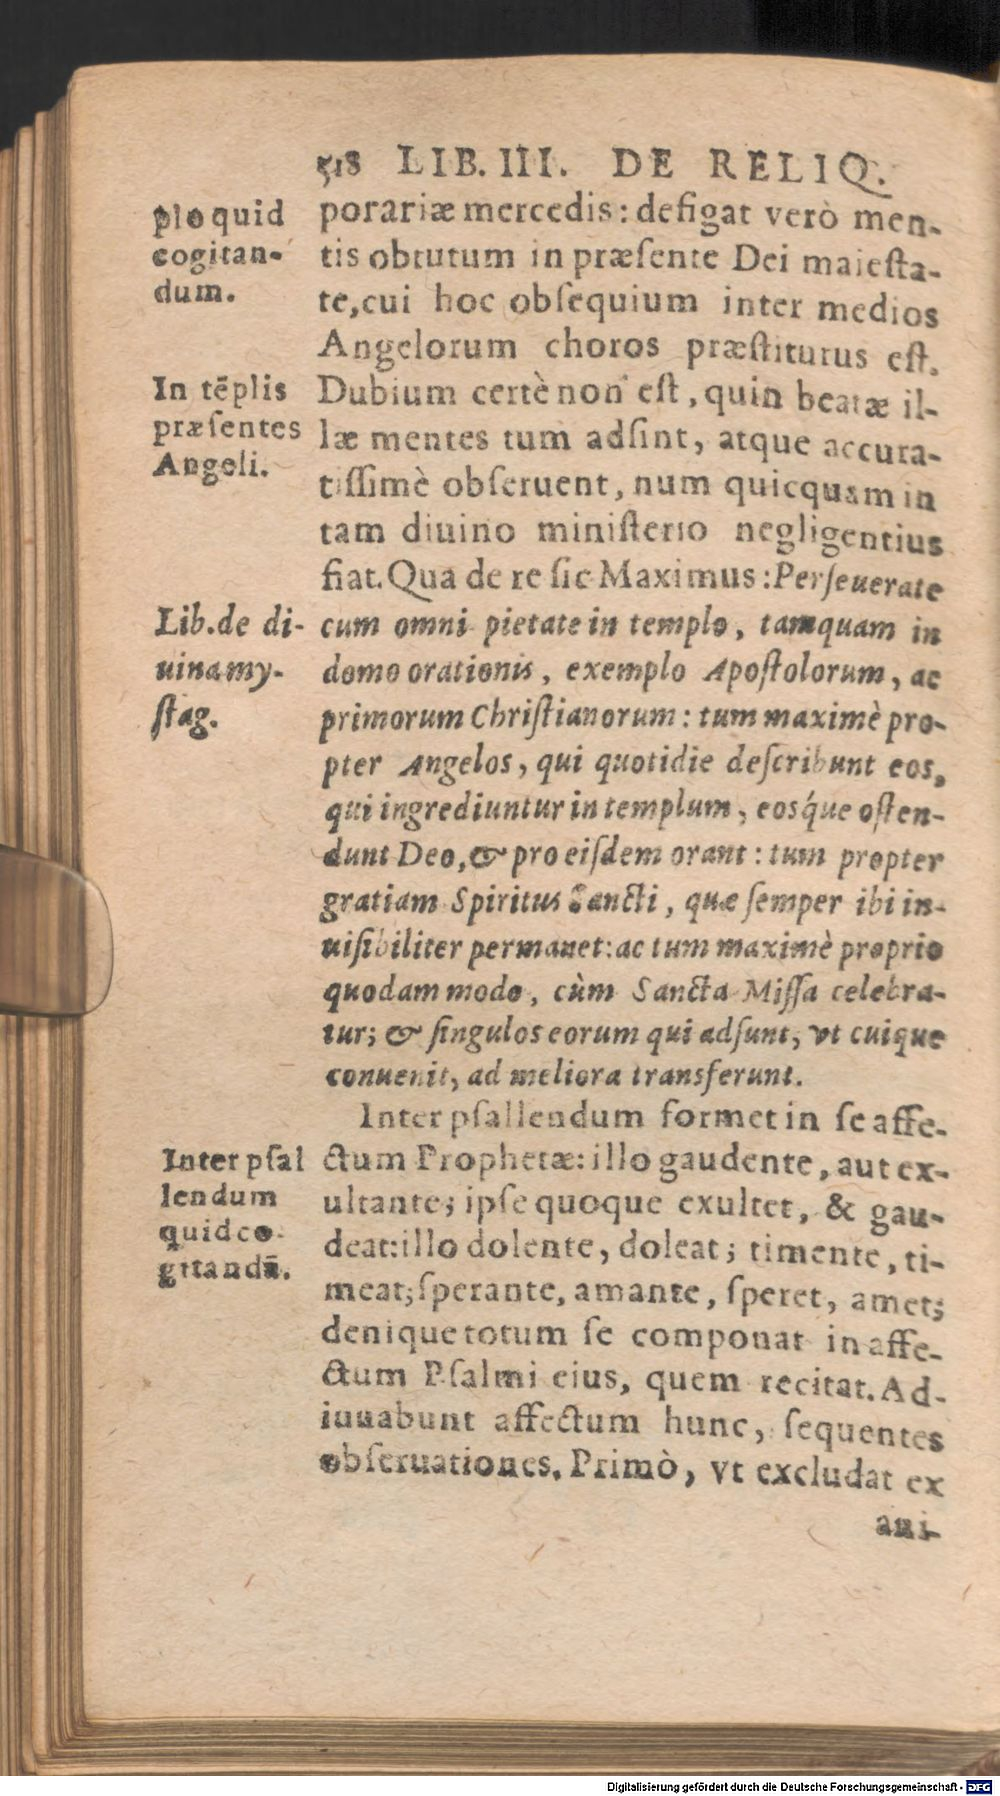 518 LIB. III. DE RELIQ.
plo quid
cogitan-
dum.
porariæ mercedis: defigat verò men-
tis obtutum in præſente Dei maieſta-
te, cui hoc obſequium inter medios
Angelorum choros præſtiturus eſt.
In tēplis
præſentes
Angeli.
Dubium certè non eſt, quin beatæ il-
læ mentes tum adſint, atque accura-
tiſſimè obſeruent, num quicquam in
tam diuino miniſterio negligentius
fiat. Qua de re ſic Maximus: Perſeuerate
Lib. de di-
uina my-
ſtag.
cum omni pietate in templo, tamquam in
domo orationis, exemplo Apoſtolorum, ac
primorum Chriſtianorum: tum maximè pro-
pter Angelos, qui quotidie deſcribunt eos,
qui ingrediuntur in templum, eosq́ue oſten-
dunt Deo, & pro eiſdem orant: tum propter
gratiam Spiritus Sancti, quæ ſemper ibi in-
uiſibiliter permanet: ac tum maximè proprio
quodam modo, cùm Sancta Miſſa celebra-
tur; & ſingulos eorum qui adſunt, vt cuique
conuenit, ad meliora transferunt.
Inter pſallendum formet in ſe affe-
Inter pſal
lendum
quid co-
gitandū.
ctum Prophetæ: illo gaudente, aut ex-
ultante; ipſe quoque exultet, & gau-
deat: illo dolente, doleat; timente, ti-
meat; ſperante, amante, ſperet, amet;
denique totum ſe componat in affe-
ctum Pſalmi eius, quem recitat. Ad-
iuuabunt affectum hunc, ſequentes
obſeruationes. Primò, vt excludat ex
ani-
Digitalisierung gefördert durch die Deutsche Forschungsgemeinschaft - DFG